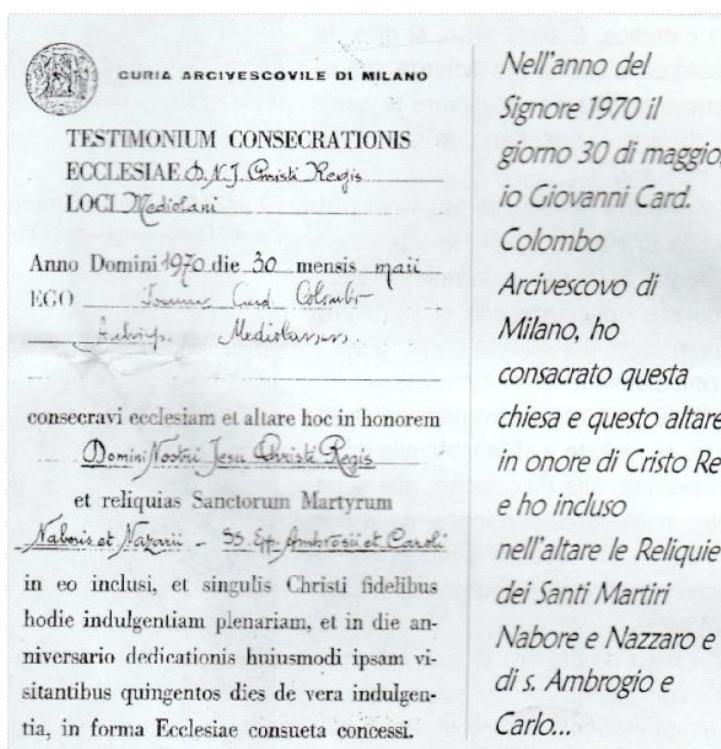 CURIA ARCIVESCOVILE DI MILANO
TESTIMONIUM CONSECRATIONIS
ECCLESIAE D. N. J. Christi Regis
LOCI Mediolani
Anno Domini 1970 die 30 mensis maii
EGO Joannes Card. Colombo
Mediolanen.
consecravi ecclesiam et altare hoc in honorem
Domini Nostri Jesu Christi Regis
et reliquias Sanctorum Martyrum
Naboris et Nazarii - SS. Epp. Ambrosii et Caroli
in eo inclusi, et singulis Christi fidelibus
hodie indulgentiam plenariam, et in die an-
niversario dedicationis huiusmodi ipsam vi-
sitantibus quingentos dies de vera indulgen-
tia, in forma Ecclesiae consueta concessi.
Nell'anno del
Signore 1970 il
giorno 30 di maggio,
io Giovanni Card.
Colombo
Arcivescovo di
Milano, ho
consacrato questa
chiesa e questo altare
in onore di Cristo Re
e ho incluso
nell'altare le Reliquie
dei Santi Martiri
Nabore e Nazzaro e
di s. Ambrogio e
Carlo...